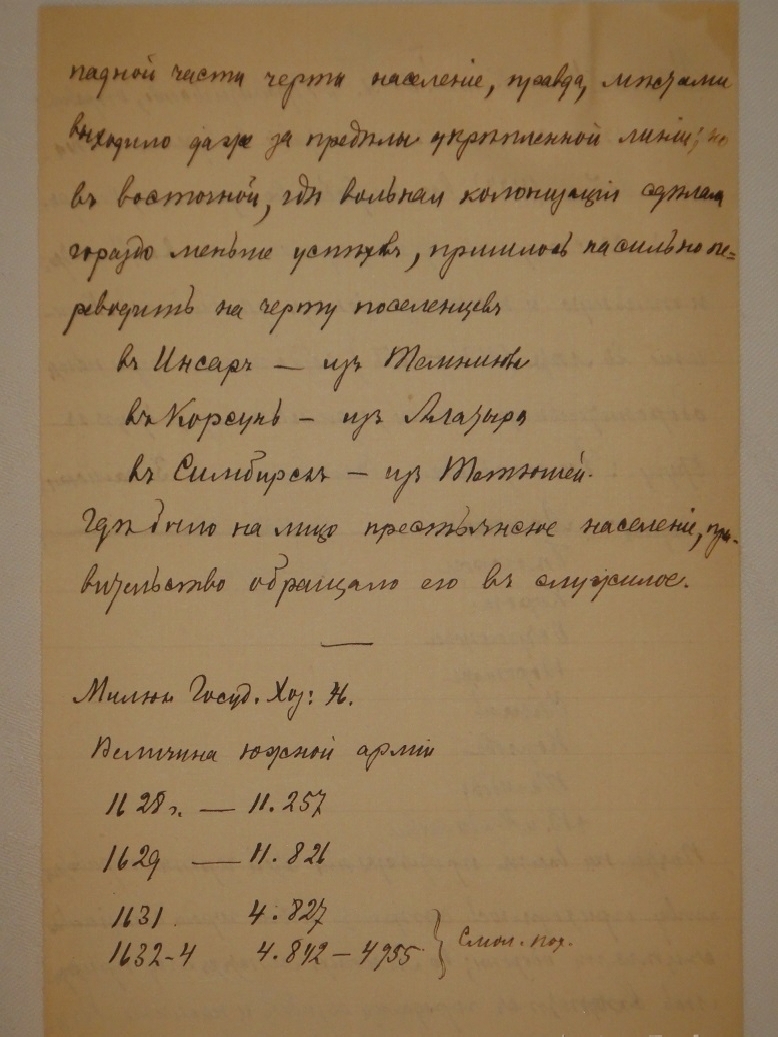 падной части черты население, правда, мѣстами
выходило даже за предѣлы укрѣпленной линіи; но
въ восточной, гдѣ вольная колонизація сдѣлала
гораздо меньше успѣховъ, пришлось насильно пе=
реводить на черту поселенцевъ
въ Инсаръ — изъ Темникова
въ Корсунь — изъ Алатыря
въ Симбирскъ — изъ Тетюшей.
Гдѣ было на лицо крестьянское населеніе, пра-
вительство обращало его въ служилое.
—
Милюк. Госуд. Хоз:
Величина южной арміи
1628 г. — 11.257
1629 — 11.826
1631 4.827
1632-4 4.842 — 4955 } Смол. пох.